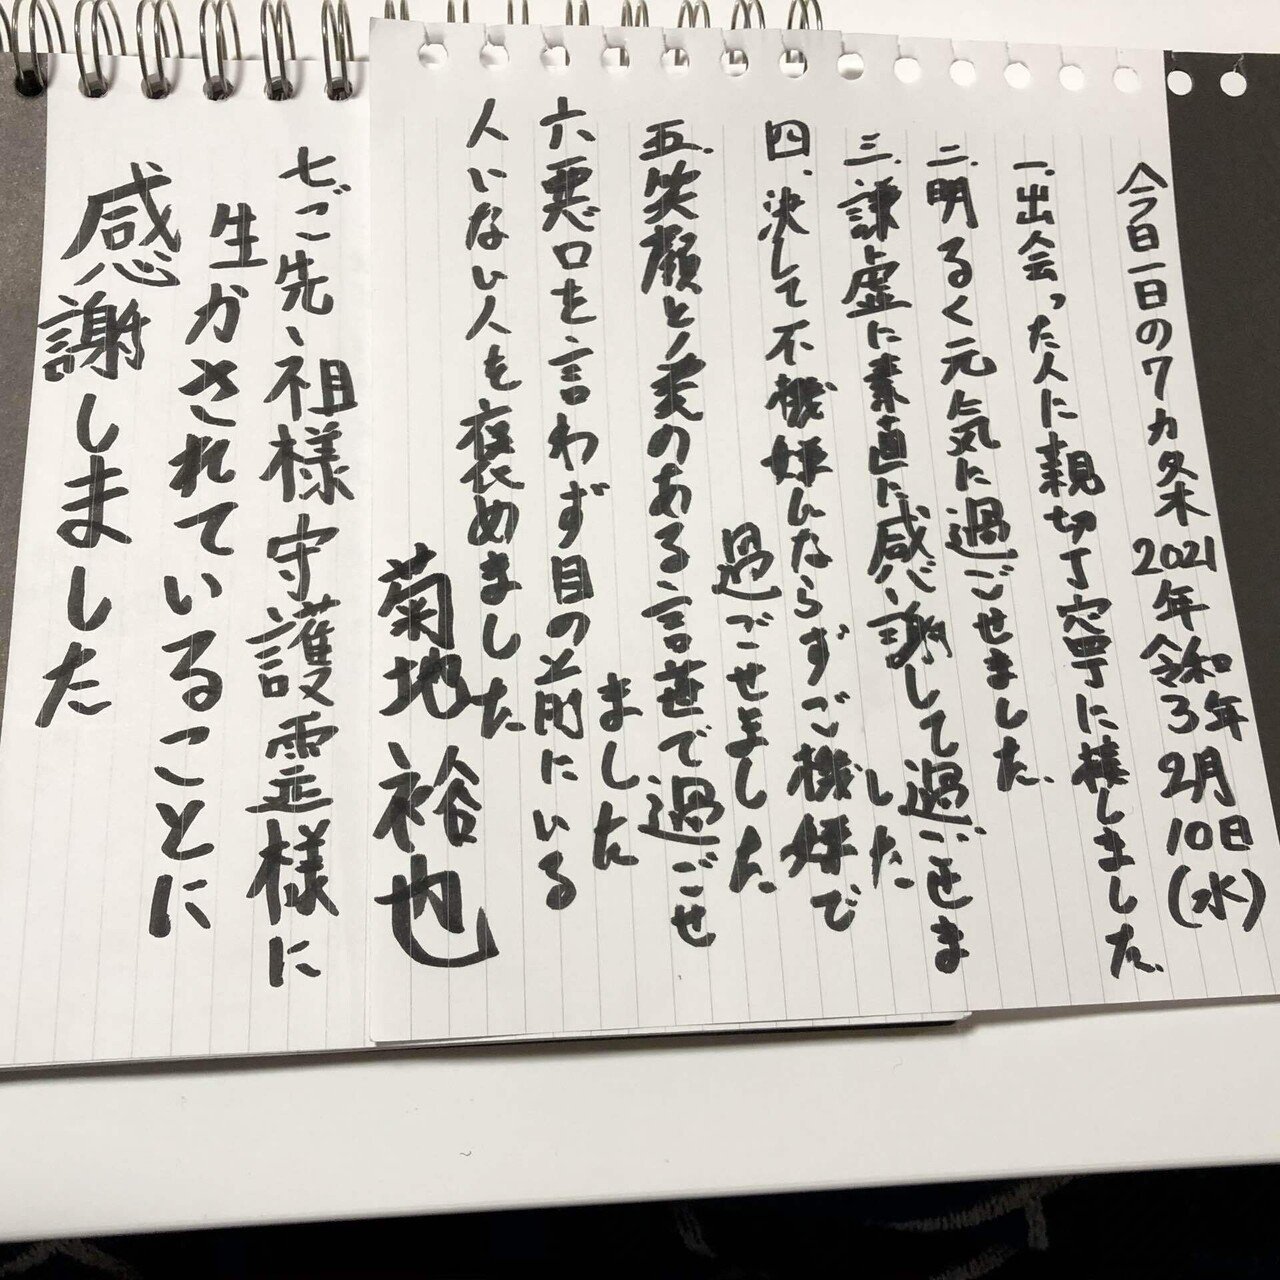 今日一日の7カ条 2021年令和3年2月10日(水)
一、出会った人に親切丁寧に接しました
二、明るく元気に過ごせました
三、謙虚に素直に感謝して過ごせま
した
四、決して不機嫌にならずご機嫌で
過ごせました
五、笑顔と愛のある言葉で過ごせ
ました
六、悪口を言わず目の前にいる
人いない人を褒めました
菊地 裕也
七、ご先祖様守護霊様に
生かされていることに
感謝しました